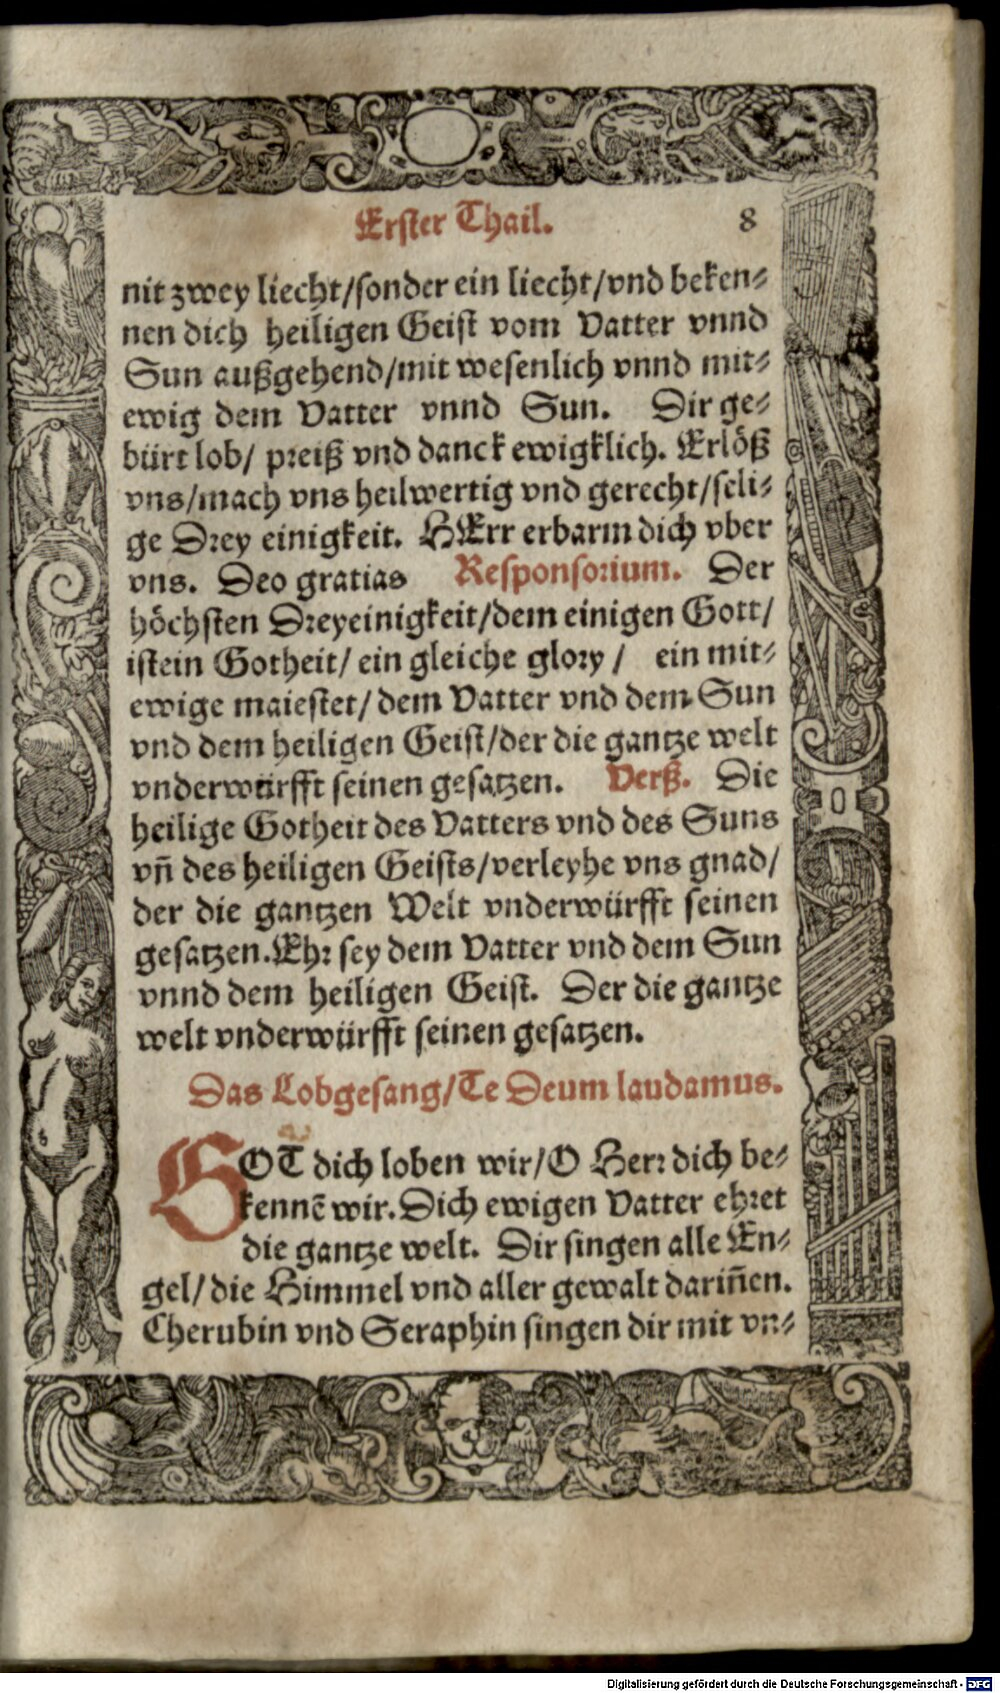 Erster Thail. 8
nit zwey liecht/sonder ein liecht/vnd beken⸗
nen dich heiligen Geist vom Vatter vnnd
Sun außgehend/mit wesenlich vnnd mit⸗
ewig dem Vatter vnnd Sun. Dir ge⸗
bürt lob/ preiß vnd danck ewigklich. Erlöß
vns/mach vns heilwertig vnd gerecht/seli⸗
ge Drey einigkeit. HErr erbarm dich vber
vns. Deo gratias Responsorium. Der
höchsten Dreyeinigkeit/dem einigen Gott/
ist ein Gotheit/ ein gleiche glory / ein mit⸗
ewige maiestet/ dem Vatter vnd dem Sun
vnd dem heiligen Geist/der die gantze welt
vnderwürfft seinen gesatzen. Verß. Die
heilige Gotheit des Vatters vnd des Suns
vñ des heiligen Geists/verleyhe vns gnad/
der die gantzen Welt vnderwürfft seinen
gesatzen. Ehr sey dem Vatter vnd dem Sun
vnnd dem heiligen Geist. Der die gantze
welt vnderwürfft seinen gesatzen.
Das Lobgesang/Te Deum laudamus.
GOT dich loben wir/O Herr dich be⸗
kennē wir. Dich ewigen Vatter ehret
die gantze welt. Dir singen alle En⸗
gel/ die Himmel vnd aller gewalt dariñen.
Cherubin vnd Seraphin singen dir mit vn⸗
Digitalisierung gefördert durch die Deutsche Forschungsgemeinschaft - DFG